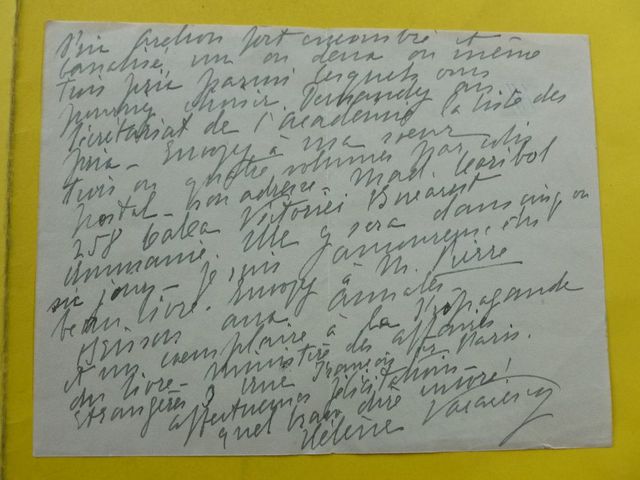 Prix Archon fort encombré et
banalisé, un ou deux ou même
trois prix parmi lesquels vous
pourrez choisir. Demandez au
Secrétariat de l'académie la liste des
prix - Envoyez à ma soeur
trois ou quatre volumes par colis
postal - son adresse - Mad.
258 Calea Victoriei Bucarest
Roumanie. Elle y sera dans cinq ou
six jours - Je suis amoureuse du
beau livre. Envoyez à M. Pierre
Brisson aux Annales -
et un exemplaire à la Propagande
du livre - ministère des affaires
Etrangères 3 rue François 1er Paris.
affectueuses félicitations -
quel beau livre encore!
Hélène Vacaresco